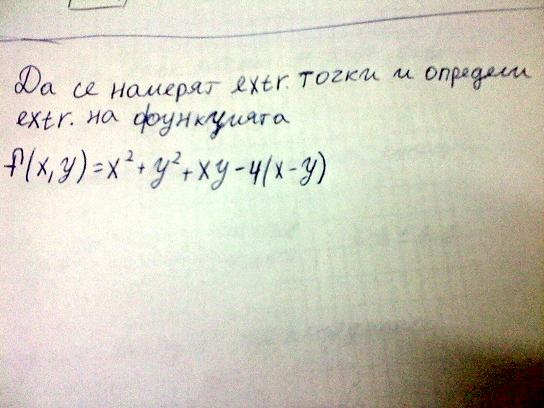 Да се намерят extr. точки и определи
extr. на функцията
f(x,y)=x²+y²+xy-4(x-y)